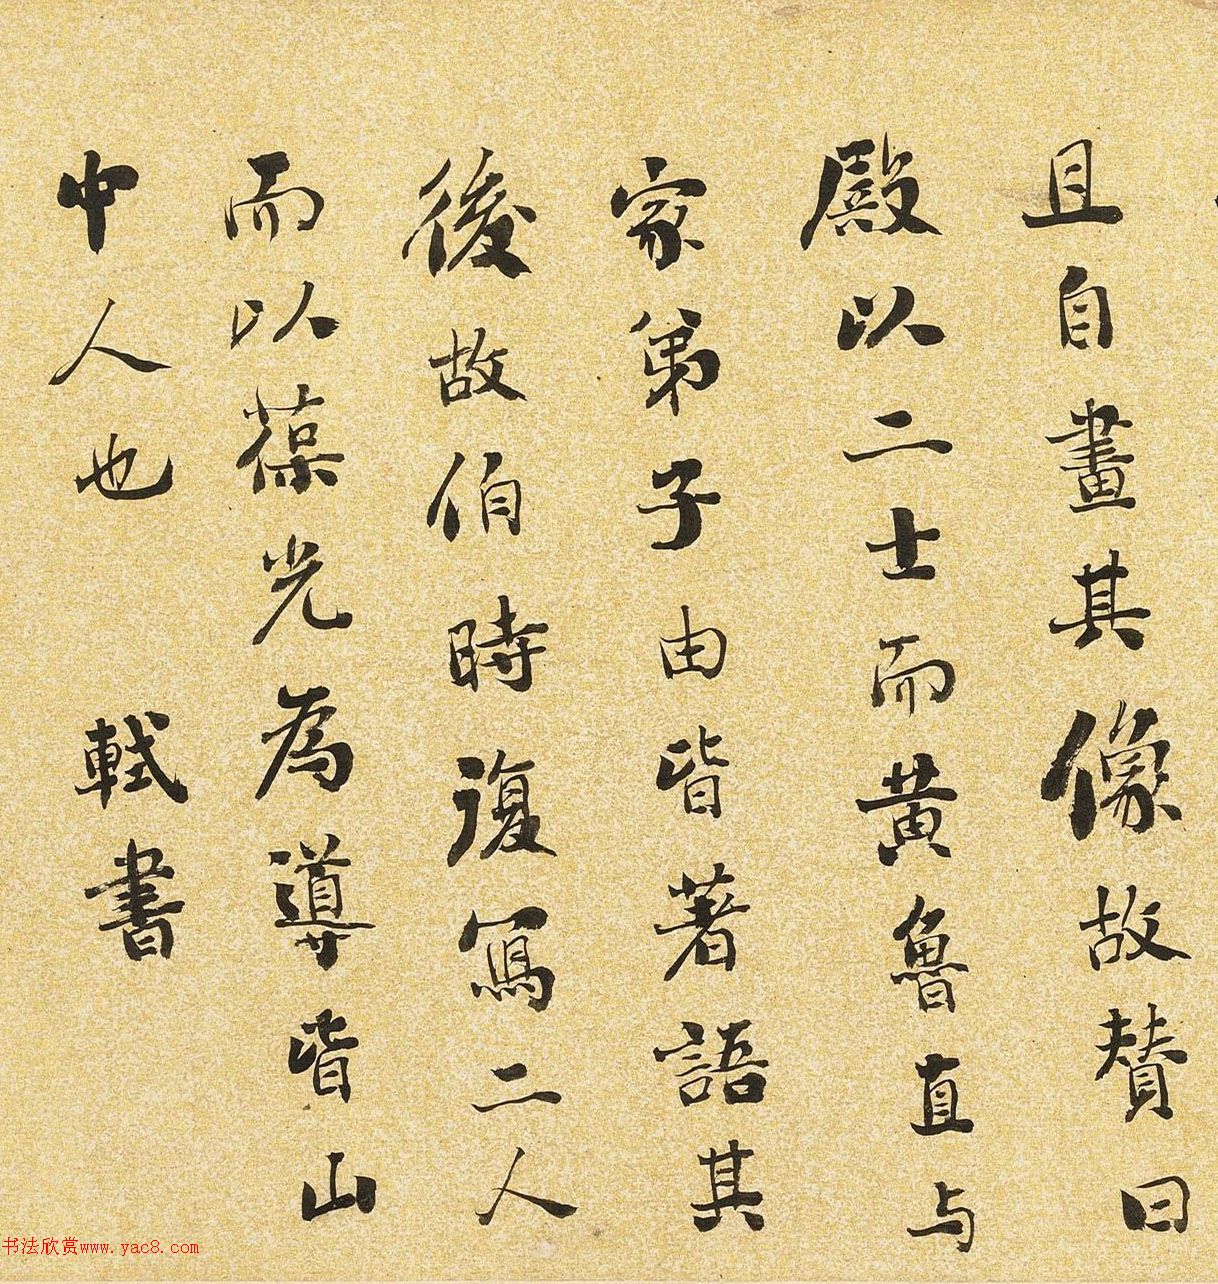 且自畫其像故賛曰
殿以二士而黄魯直与
家弟子由皆著語其
後故伯時復寫二人
而以葆光為導皆山
中人也 軾書
书法欣赏www.yac8.com